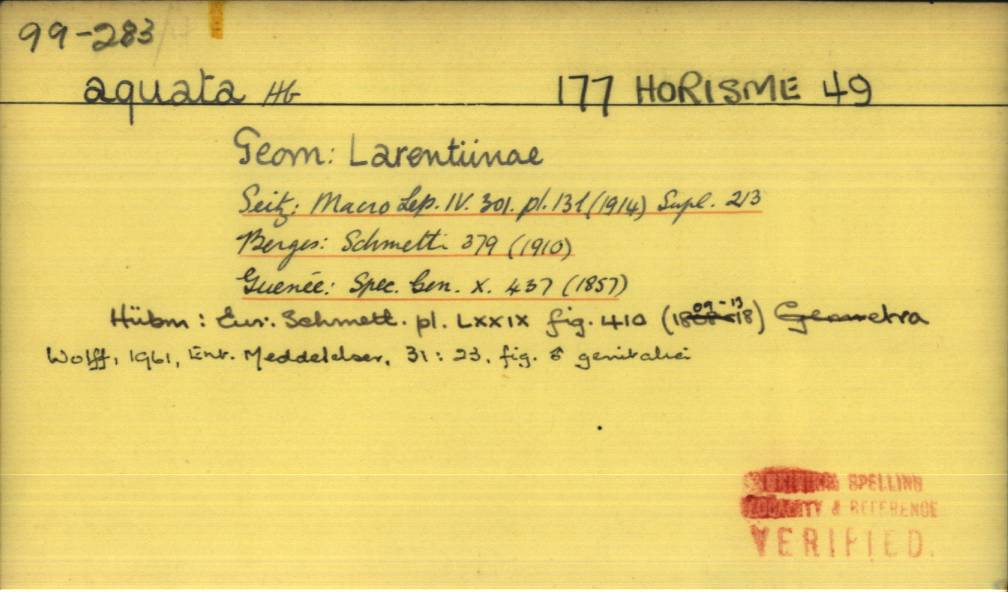 99-283
aquata HG 177 HORISME 49
Geom: Larentiinae
Seitz: Macro Lep. IV. 301. pl. 13 (1914) Supl. 213
Berges: Schmett. 379 (1910)
Guenée: Spec. Gen. X. 437 (1857)
Hübn: Eur. Schmett. pl. LXXIX fig. 410 (1809-13) Geometra
Wolff, 1961, Ent. Meddelelser, 31: 23, fig. genitalia
SPELLING
LOCALITY & REFERENCE
VERIFIED.